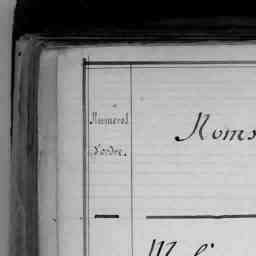 Numéros
d'ordre.
Noms